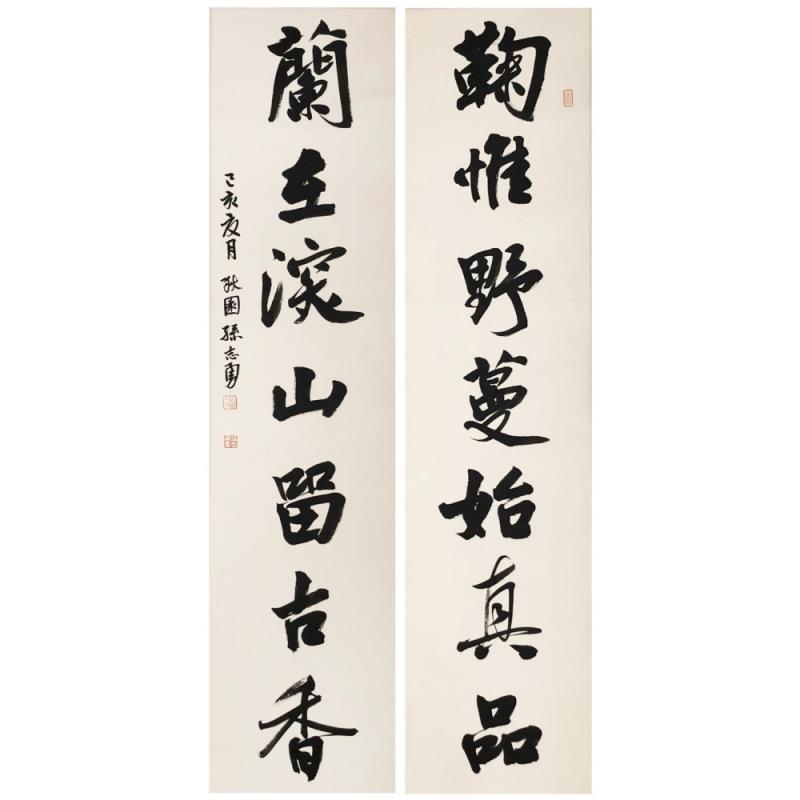 鞠惟野蔓始真品
蘭在深山留古香
己亥夏月 秋園 孫志勇